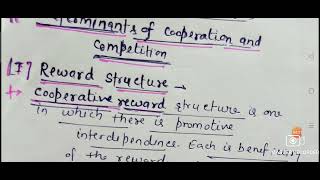 Determinants of cooperation and
competition
[I] Reward structure →
Cooperative reward structure is one
in which there is promotive
interdependence. Each is beneficiary
of the reward